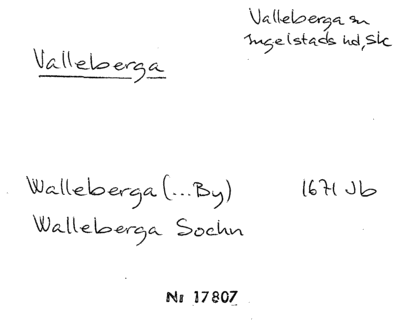 Valleberga sn
Ingelstads hd, Sk
Valleberga
Walleberga (...By) 1671 Jb
Walleberga Sochn
Nr 17807